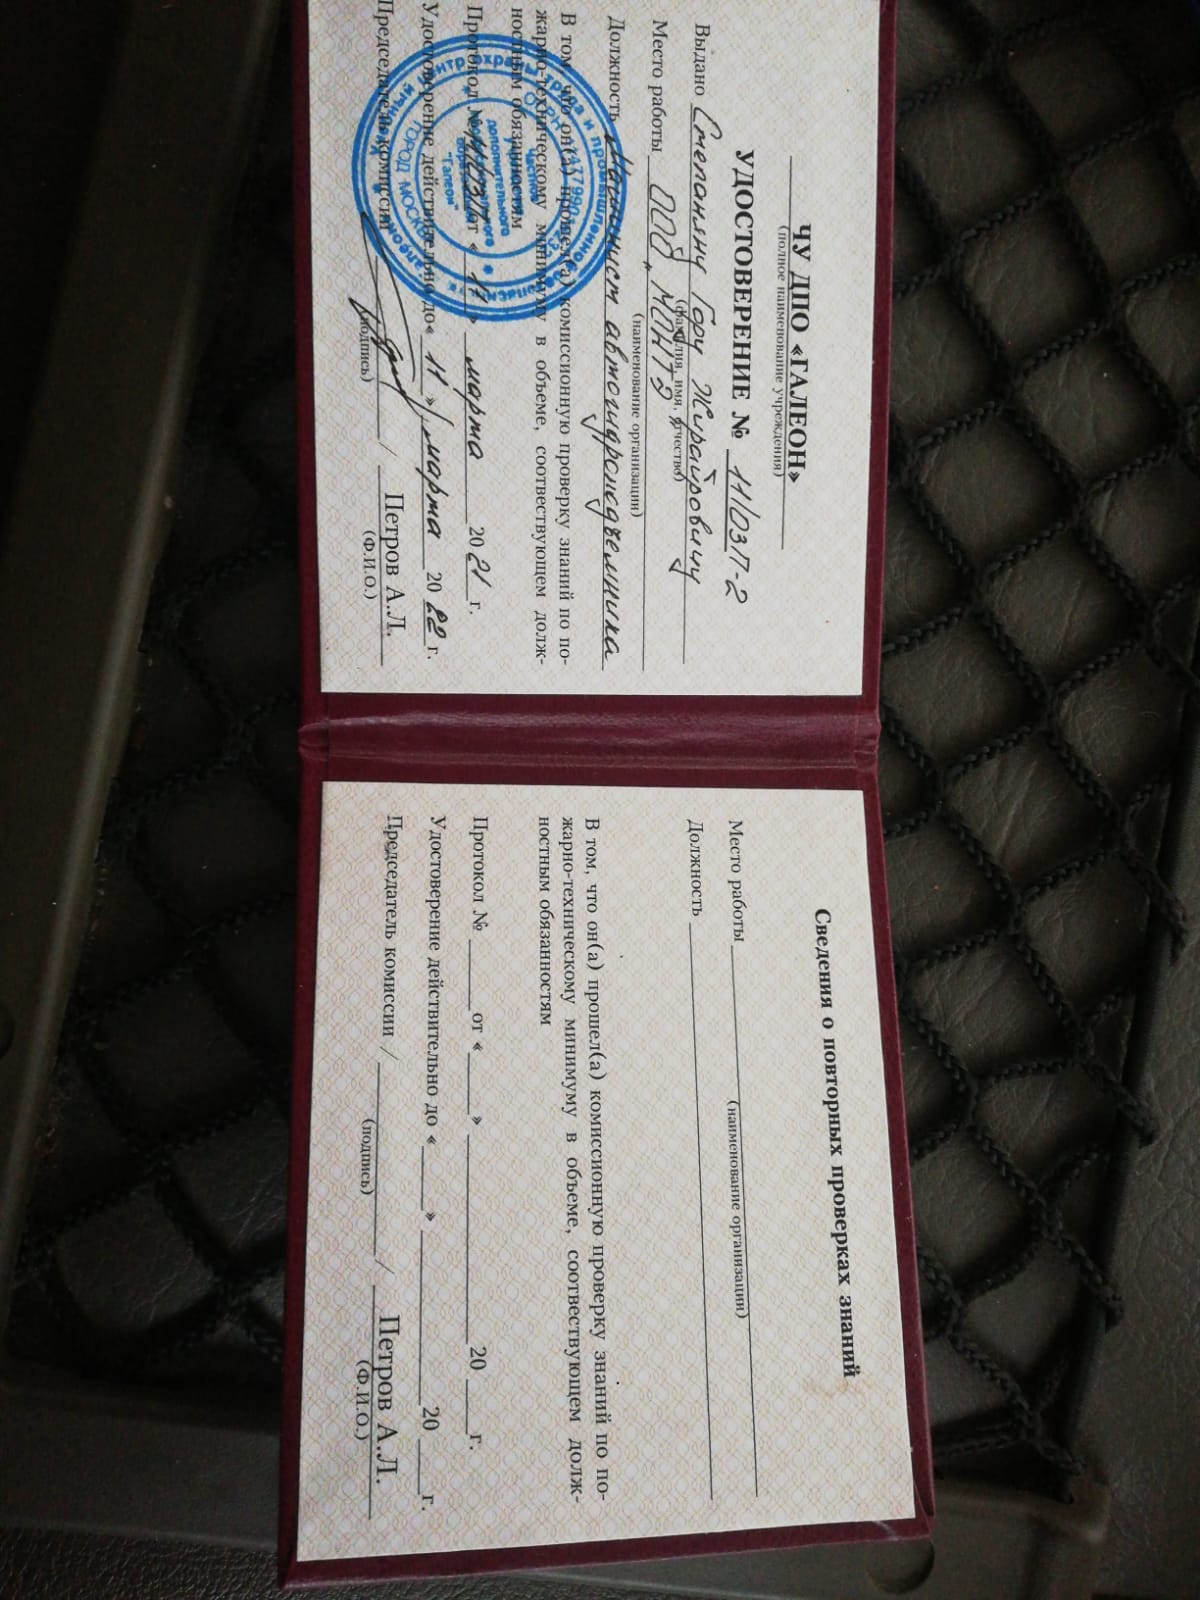 ЧУ ДПО «ГАЛЕОН»
(полное наименование учреждения)
УДОСТОВЕРЕНИЕ № 11/03П-2
Выдано Степаняну Гору Жирайровичу
(фамилия, имя, отчество)
Место работы ООО „МОНТЭ
(наименование организации)
Должность Машинист автогидроподъемника
В том, что он(а) прошел(а) комиссионную проверку знаний по по-
жарно-техническому минимуму в объеме, соотвествующем долж-
ностным обязанностям
Протокол № от « 11 » марта 20 21 г.
Удостоверение действительно до « 11 » марта 20 22 г.
Председатель комиссии / / Петров А.Л.
(подпись) (Ф.И.О.)
центр охраны труда и промышленной безопасности
ОГРН
ГОРОД МОСКВА
Частное
дополнительного
"Галеон"
Сведения о повторных проверках знаний
Место работы
(наименование организации)
Должность
В том, что он(а) прошел(а) комиссионную проверку знаний по по-
жарно-техническому минимуму в объеме, соотвествующем долж-
ностным обязанностям
Протокол № от « » 20 г.
Удостоверение действительно до « » 20 г.
Председатель комиссии / / Петров А.Л.
(подпись) (Ф.И.О.)